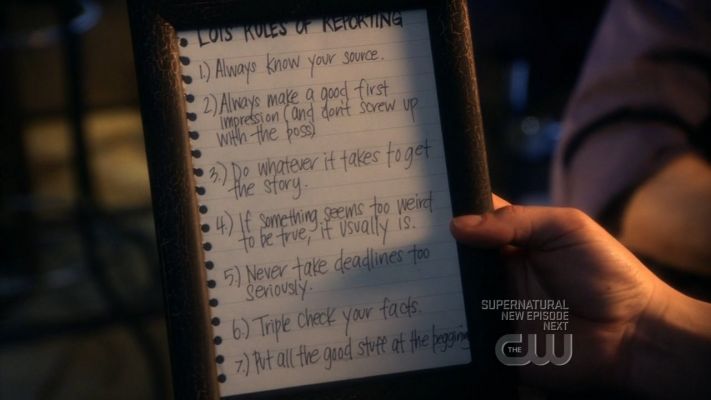 LOIS RULES OF REPORTING
1.) Always know your source.
2.) Always make a good first
impression (and don't screw up
with the boss)
3.) Do whatever it takes to get
the story.
4.) If something seems too weird
to be true, it usually is.
5.) Never take deadlines too
seriously.
6.) Triple check your facts.
7.) Put all the good stuff at the beggining
SUPERNATURAL
NEW EPISODE
NEXT
THE CW